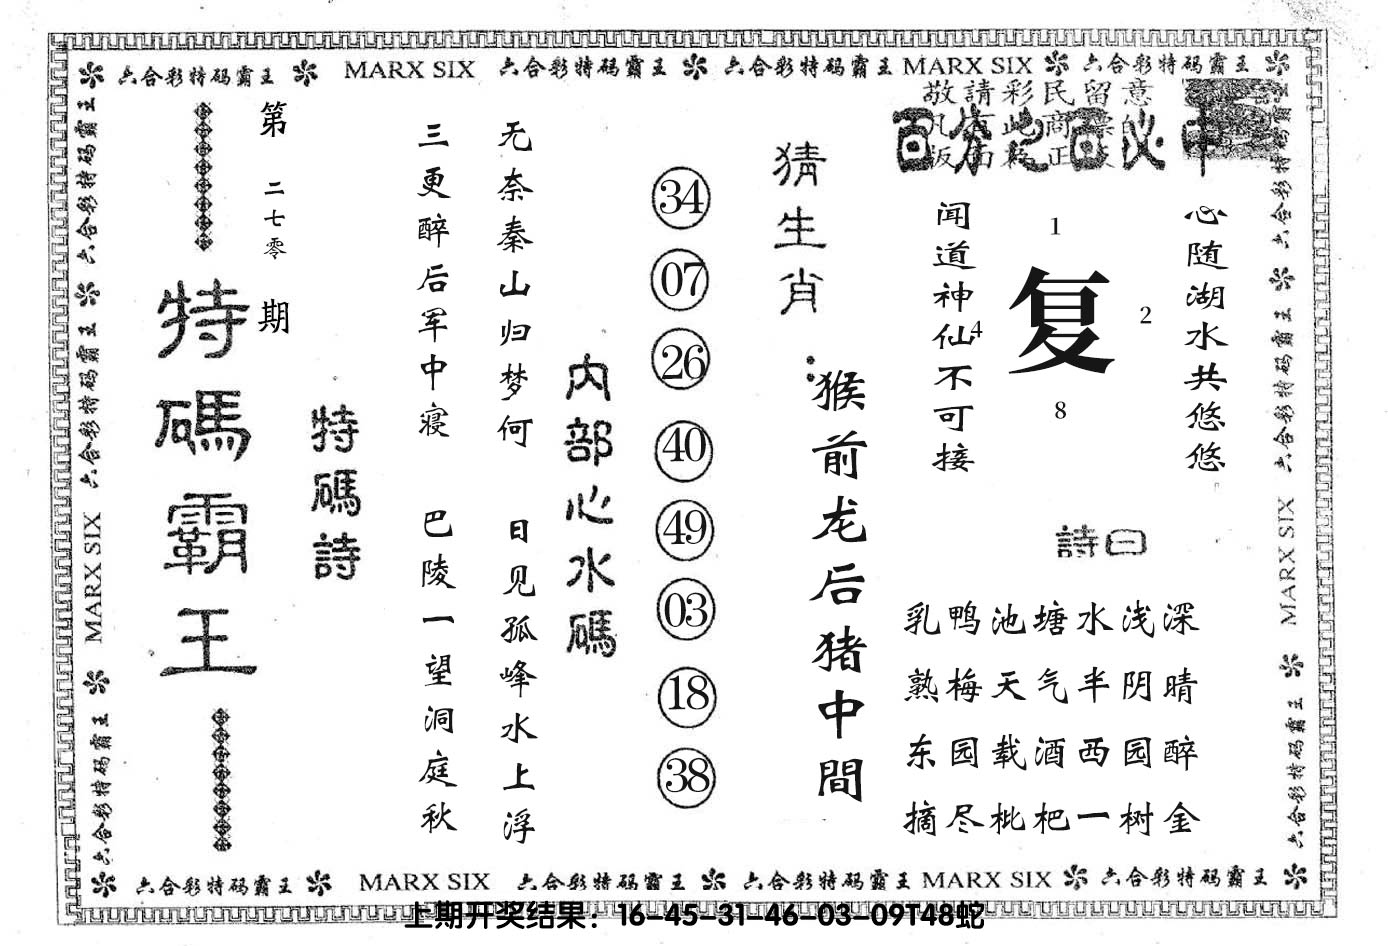 六合彩特码霸王 MARX SIX 六合彩特码霸王 六合彩特码霸王 MARX SIX 六合彩特码霸王
敬請彩民留意
百分之百必中
第二七零期
特碼霸王
特碼詩
三更醉后军中寝 巴陵一望洞庭秋
无奈秦山归梦何 日见孤峰水上浮
内部心水碼
34
07
26
40
49
03
18
38
猜生肖:
猴前龙后猪中間
闻道神仙不可接
1
复
2
4
8
心随湖水共悠悠
詩曰
乳鸭池塘水浅深
熟梅天气半阴晴
东园载酒西园醉
摘尽枇杷一树金
六合彩特码霸王 MARX SIX 六合彩特码霸王
六合彩特码霸王 MARX SIX 六合彩特码霸王
六合彩特码霸王 MARX SIX 六合彩特码霸王 六合彩特码霸王 MARX SIX 六合彩特码霸王
上期开奖结果：16-45-31-46-03-09T48蛇